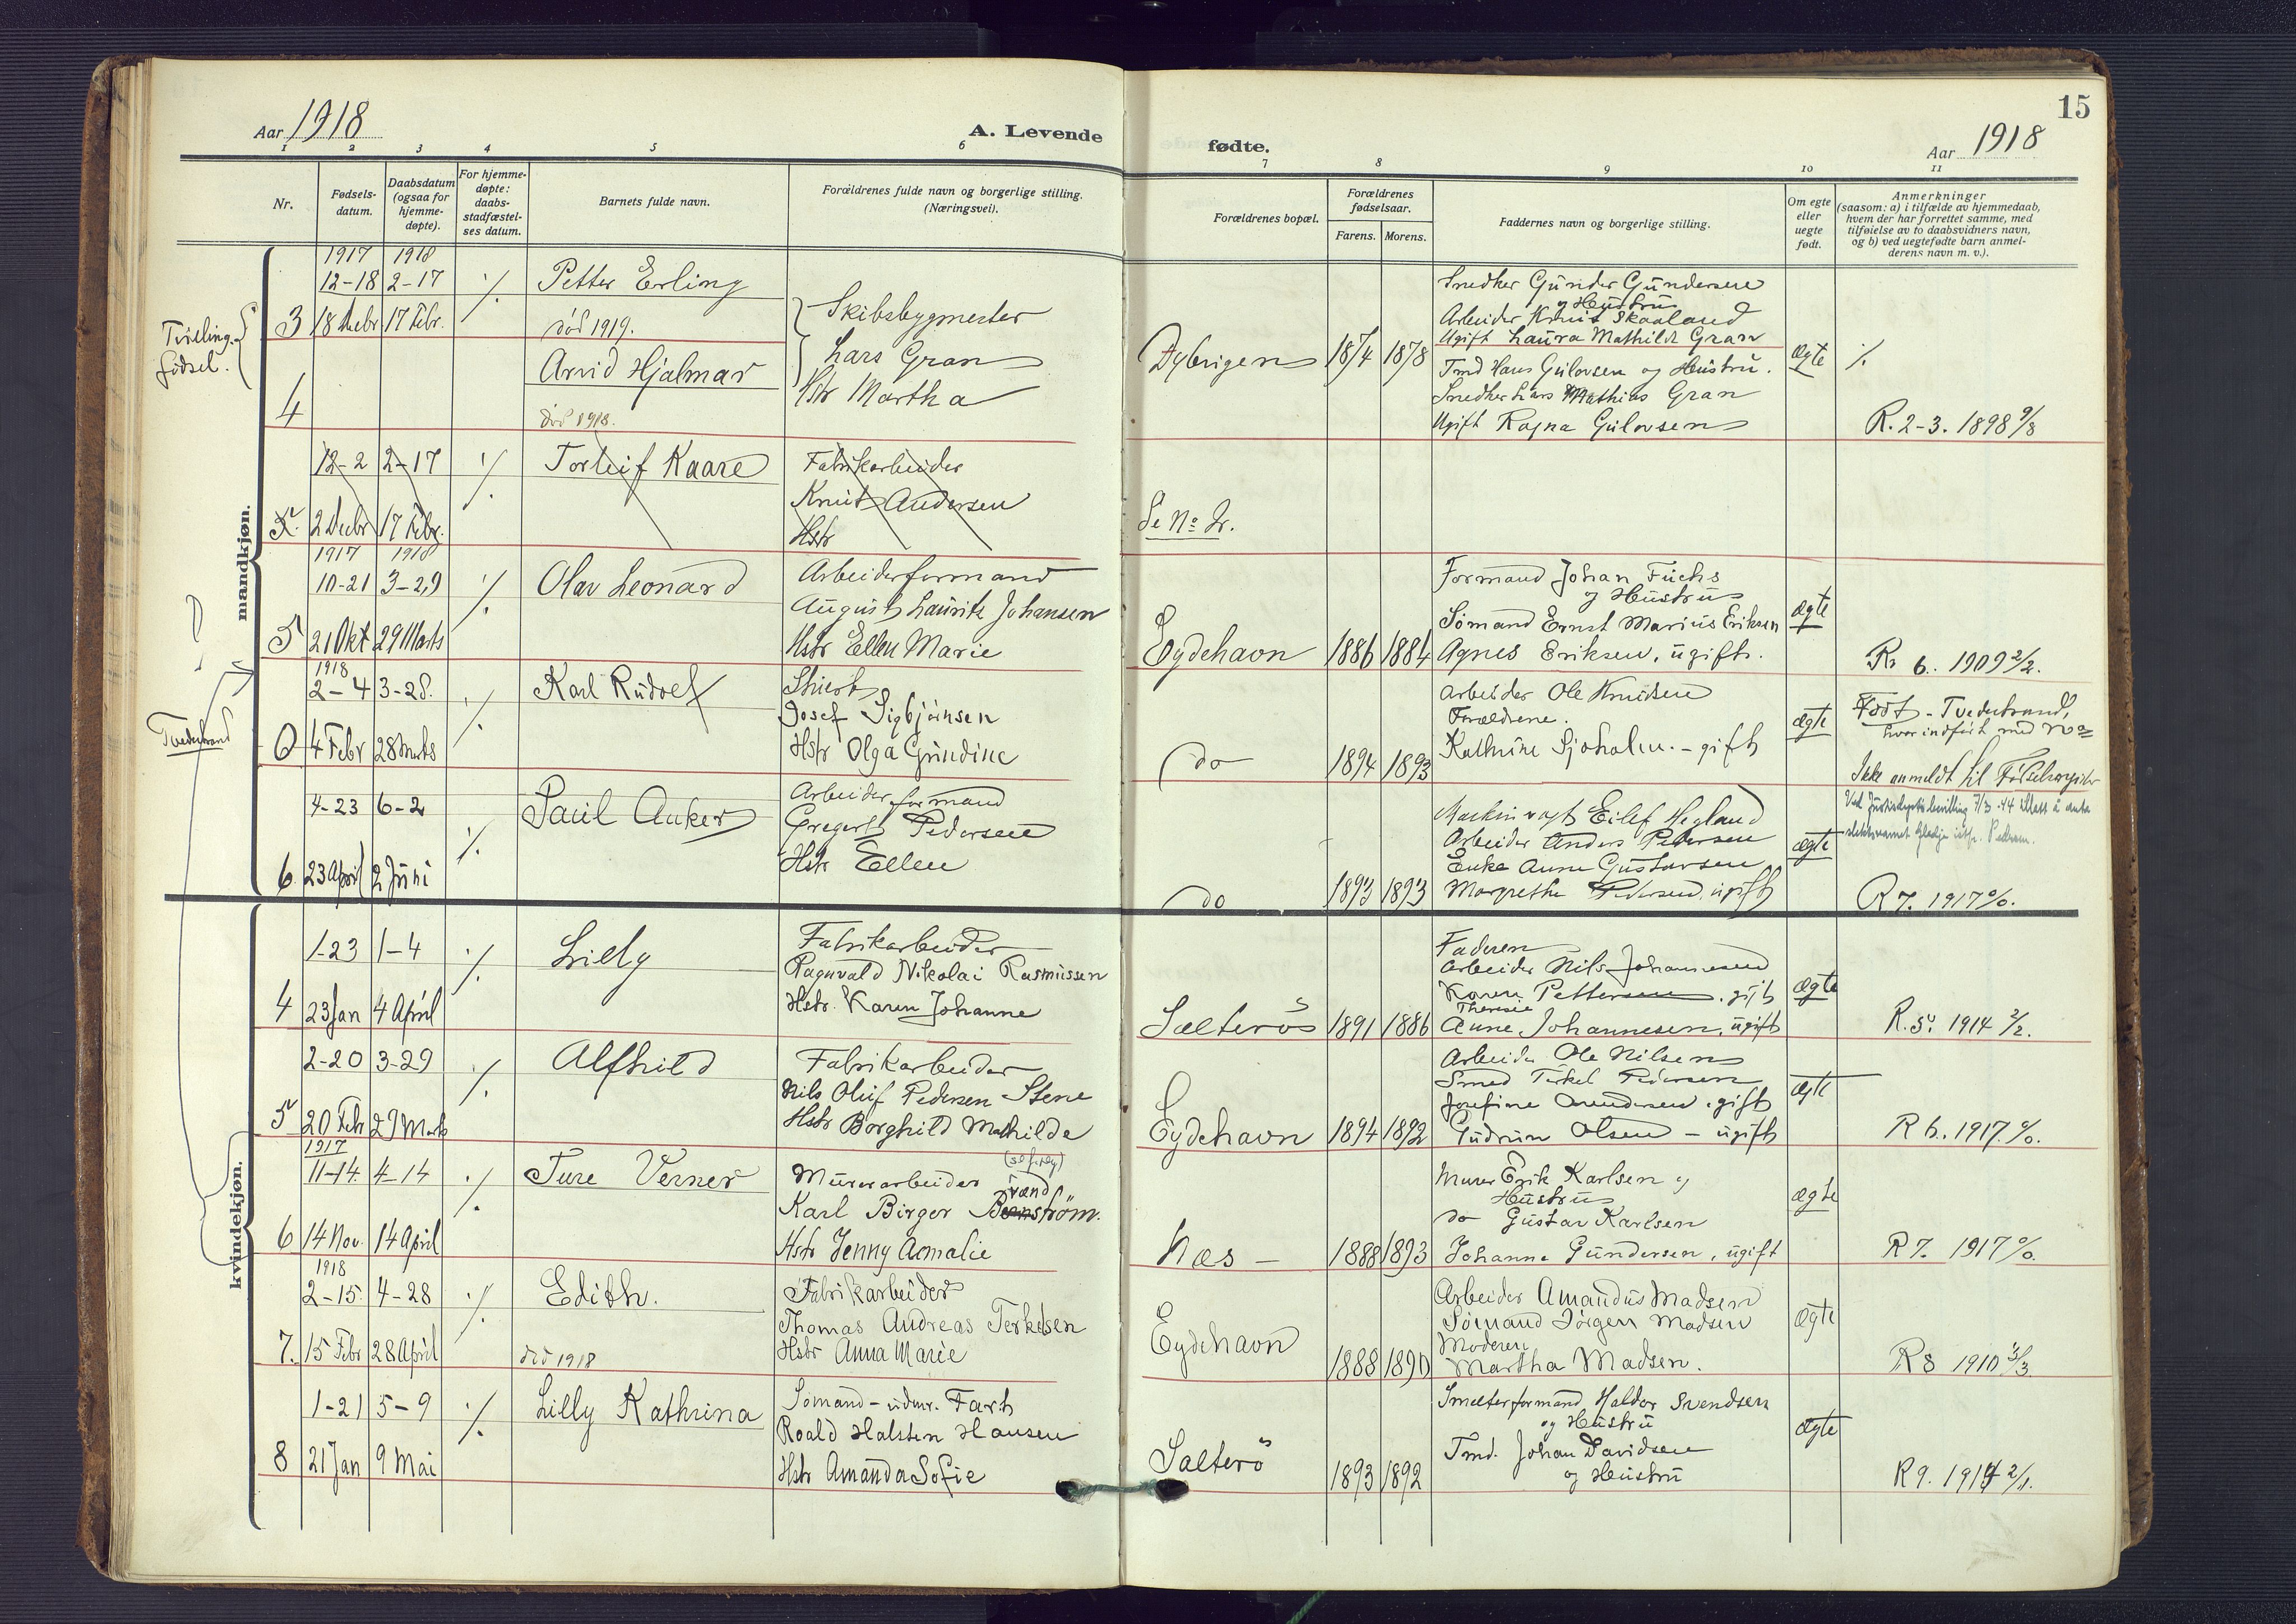 Aar 1918
A. Levende
1 2 3 4 5 6
Nr.
Fødsels-
datum.
Daabsdatum
(ogsaa for
hjemme-
døpte).
For hjemme-
døpte:
daabs-
stadfæstel-
ses datum.
Barnets fulde navn.
Forældrenes fulde navn og borgerlige stilling.
(Næringsvei).
mandkjøn.
Tvilling-
fødsel.
1917 1918
12-18 2-17 ·/. Petter Erling
3 18 Decbr 17 Febr. død 1919.
Skibsbygmester
Lars Gran
Hstr Martha
Arvid Hjalmar
4 død 1918.
12-2 2-17 ·/. Torleif Kaare Fabrikarbeider
Knut Andersen
5. 2 Decbr 17 Febr. Hstr
1917 1918
10-21 3-29 ·/. Olav Leonard Arbeiderformand
August Lauritz Johansen
5 21 Okt 29 Marts Hstr Ellen Marie
1918
2-4 3-28. ·/. Karl Rudolf
Josef Sigbjörnsen
Tvedestrand
0 4 Febr 28 Marts Hstr Olga Gundine
4-23 6-2 ·/. Paul Anker Arbeiderformand
Gregert Pedersen
Hstr Ellen
6. 23 April 2 Juni
kvindekjøn.
1-23 1-4 ·/. Lilly Fabrikarbeider
Ragnvald Nikolai Rasmussen
4 23 Jan 4 April Hstr. Karen Johanne
2-20 3-29 ·/. Alfhild Fabrikarbeider
Nils Oluf Pedersen Stene
5 20 Febr 29 Marts Hstr Borghild Mathilde
1917
11-14. 4-14 ·/. Ture Verner Murerarbeider
Karl Birger
6 14 Nov. 14 April Hstr Jenny Aomalie
1918
2-15. 4-28 ·/. Edith. Fabrikarbeider
Thomas Andreas Terkelsen
7. 15 Febr 28 April død 1918 Hstr Anna Marie
1-21 5-9 ·/. Lilly Kathrina Sømand - udenr. Fart
Roald Halsten Hansen
8 21 Jan 9 Mai Hstr Amanda Sofie
15
fødte.
Aar 1918
7 8 9 10 11
Forældrenes bopæl.
Forældrenes
fødselsaar.
Farens. Morens.
Faddernes navn og borgerlige stilling.
Om egte
eller
uegte
født.
Anmerkninger
(saasom: a) i tilfælde av hjemmedaab,
hvem der har forrettet samme, med
tilføielse av to daabsvidners navn,
og b) ved uegtefødte barn anmel-
derens navn m. v.).
Snedker Gunder Gundersen
og Hustru
Arbeider Knut Skaaland
Ugift Laura Mathilde Gran
Dybvigen 1874 1878 Tmd Hans Gulovsen og Hustru. Ægte ·/.
Snedker Lars Mathias Gran
Ugift Ragna Gulovsen R. 2-3. 1898 9/8
Se No 2.
Formand Johan Fuchs
og Hustru
Sømand Ernst Marius Eriksen Ægte
Eydehavn 1886 1884 Agnes Eriksen, ugift. R. 6. 1909 2/2.
Arbeider Ole Knudsen
Forældrene.
Kathrine Sjøholm. - gift Ægte
do 1894 1893
Født - Tvedestrand,
hvor indført med No
Ikke anmeldt til
Maskinvagt Eilef Hegland
Arbeider Anders Pedersen
Enke Anne Gustavsen Ægte
do 1893 1893 Margrethe Pedersen, ugift R 7. 1917 %.
Faderen
Arbeider Nils Johannesen
Karen Pettersen, gift Ægte
Theresie
Salterö 1891 1886 Anne Johannesen, ugift R. 5. 1914 2/2.
Arbeider Ole Nilsen
Smed Terkel Pedersen
Josefine Arendsen, gift Ægte
Eydehavn 1894 1892 Gudrun Olsen - ugift R 6. 1917. %.
Murer Erik Karlsen og
Hustru
do Gustav Karlsen Ægte
Næs - 1888 1893 Johanne Gundersen, ugift R 7. 1917 %.
Arbeider Amandus Madsen
Sømand Jörgen Madsen Ægte
Moderen
Eydehavn 1888 1890 Martha Madsen. R 8 1910 3/3.
Smelterformand Haldor Svendsen
og Hustru Ægte
Tmd. Johan Davidsen
Salterö 1893 1892 og Hustru R 9. 1914 2/1.